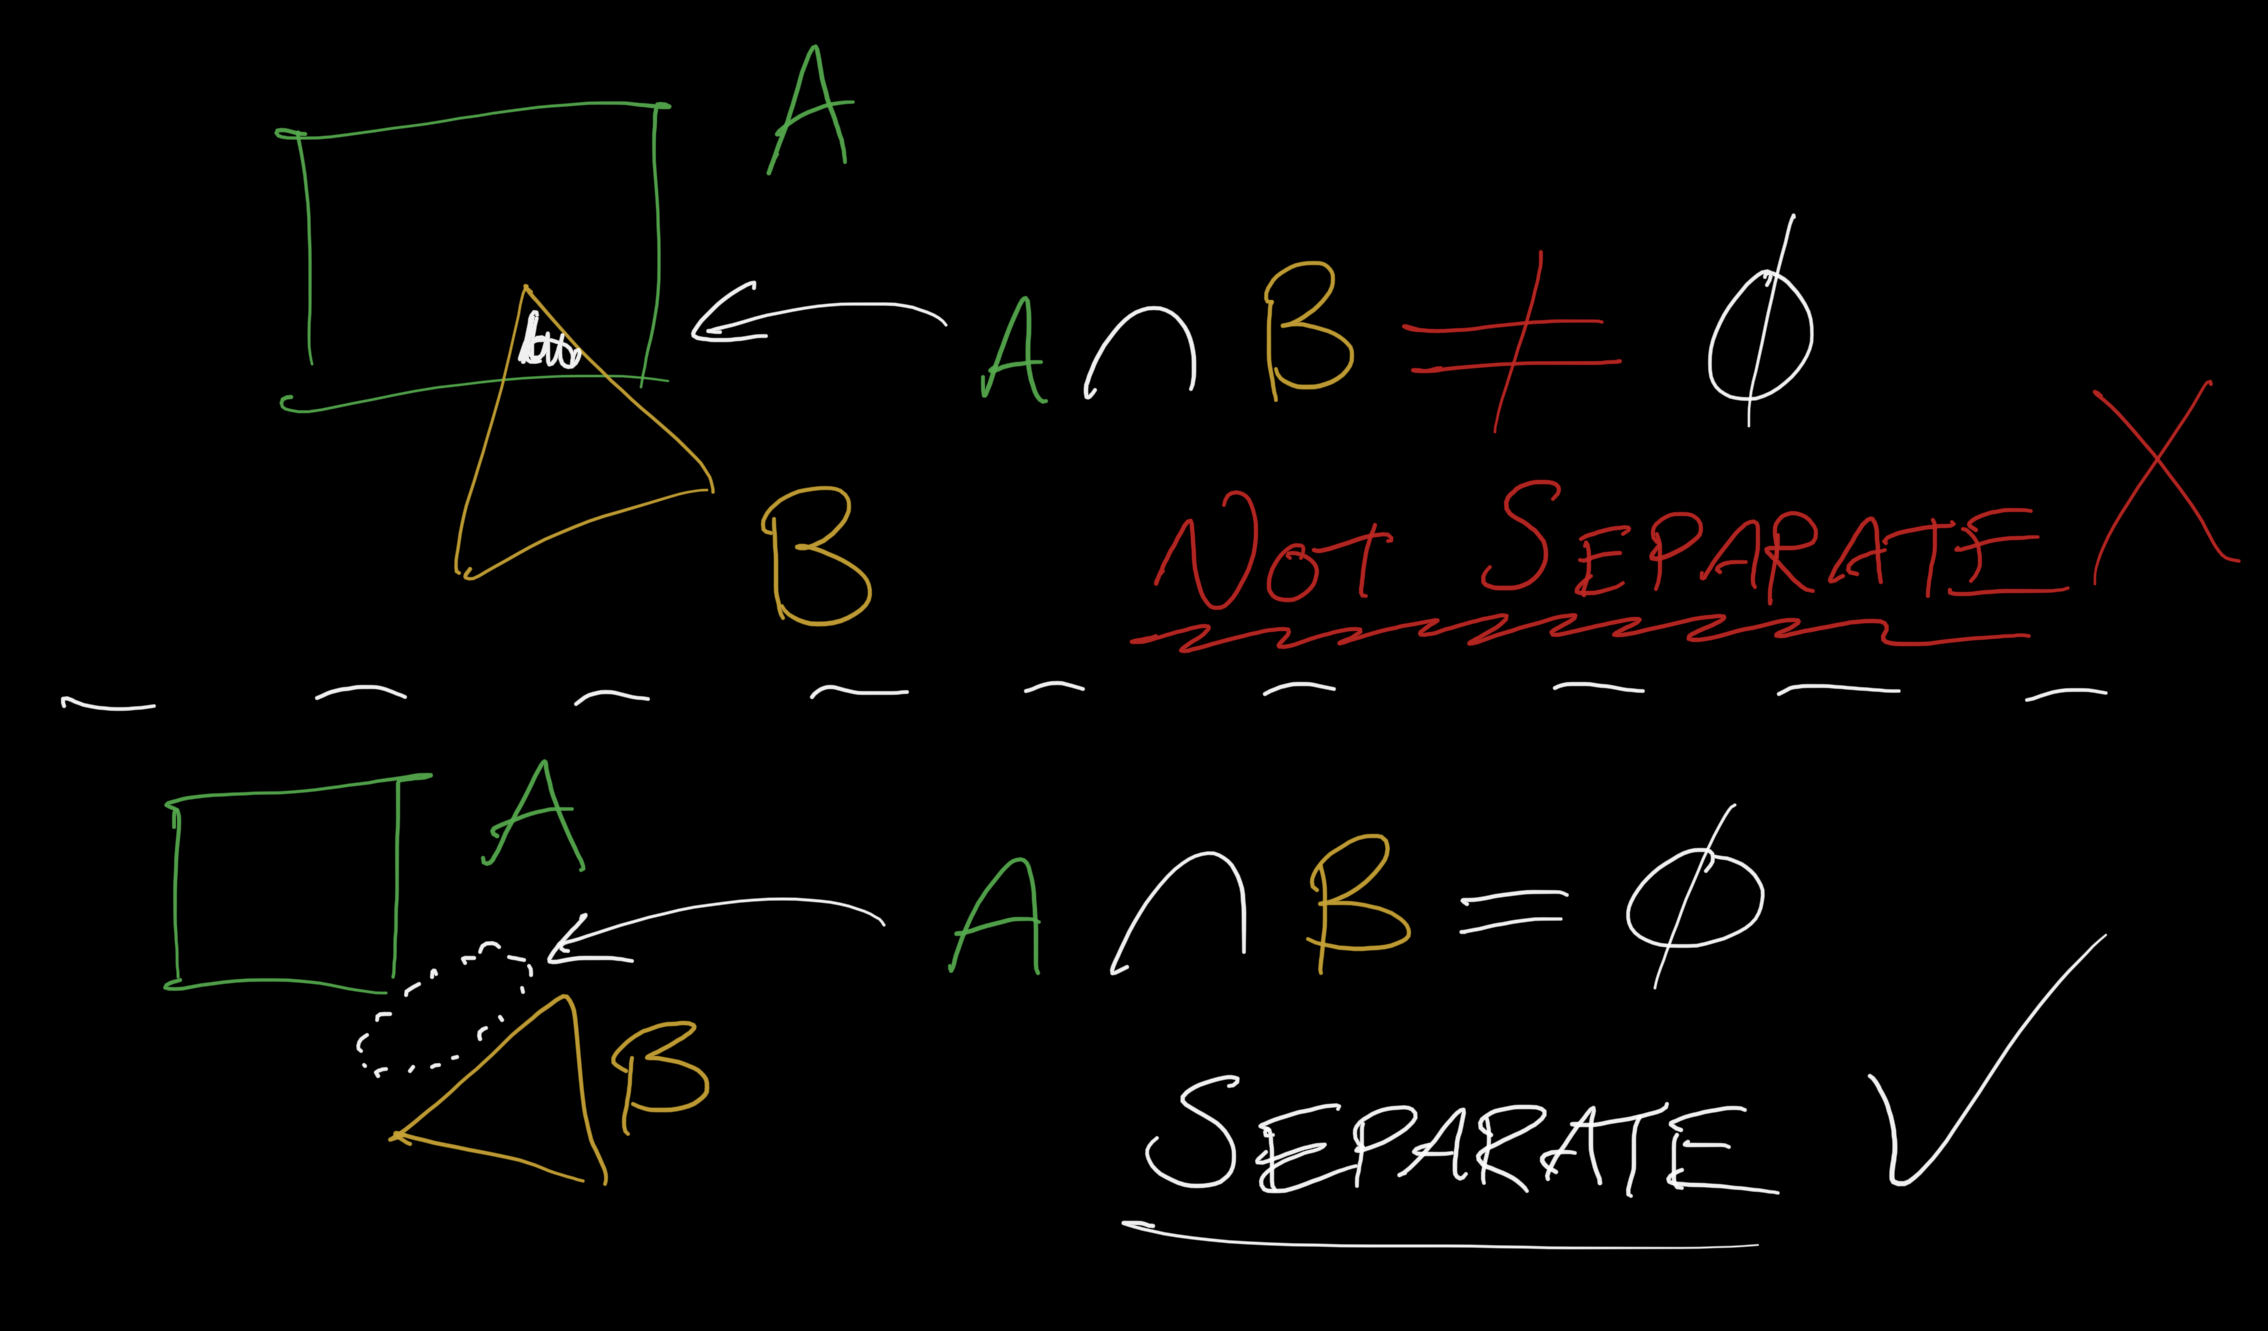 A
A ∩ B ≠ ϕ
B
NOT SEPARATE X
A
A ∩ B = ϕ
B
SEPARATE ✓